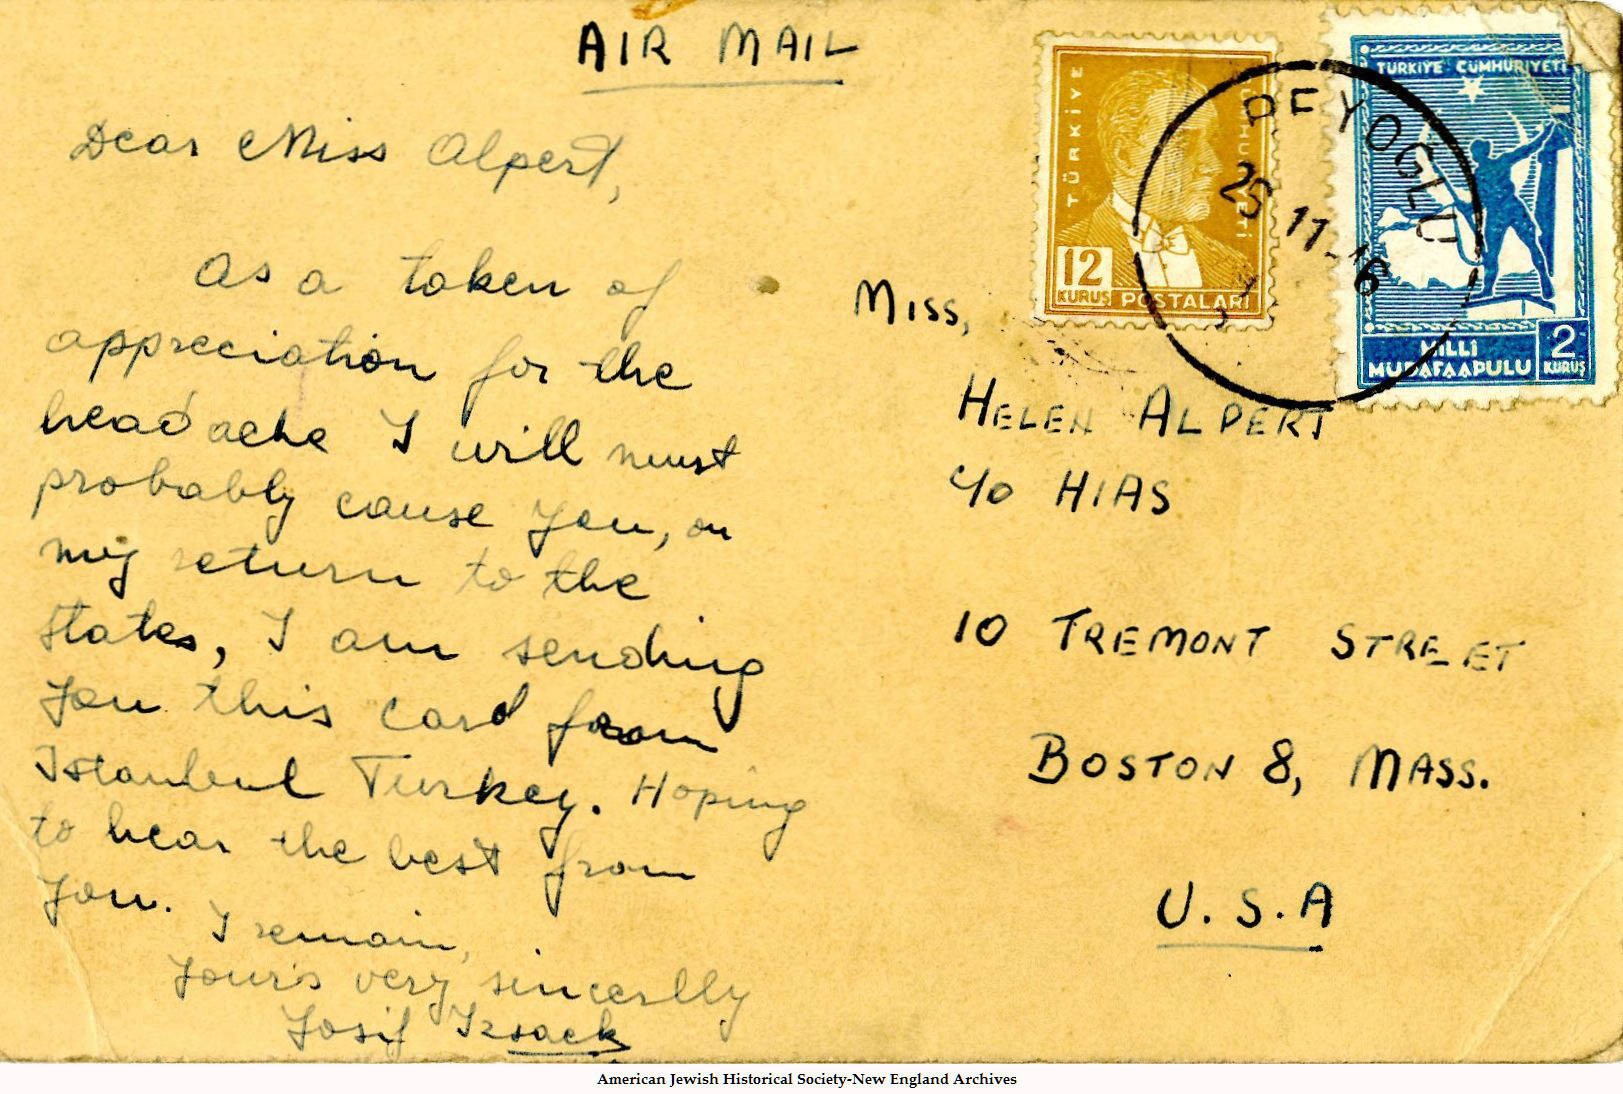 AIR MAIL
Dear Miss Alpert,
As a token of
appreciation for the
headache I will must
probably cause you, on
my return to the
States, I am sending
you this card from
Istanbul Turkey. Hoping
to hear the best from
you.
I remain,
Your's very sincerlly
Josif Issack
TÜRKİYE CÜMHURİYETİ
12
KURUŞ POSTALARI
TÜRKİYE CÜMHURİYETİ
MİLLİ
MÜDAFAAPULU
2
KURUŞ
BEYOGLU
25 11-46
Miss,
HELEN ALPERT
c/o HIAS
10 TREMONT STREET
BOSTON 8, MASS.
U.S.A
American Jewish Historical Society-New England Archives